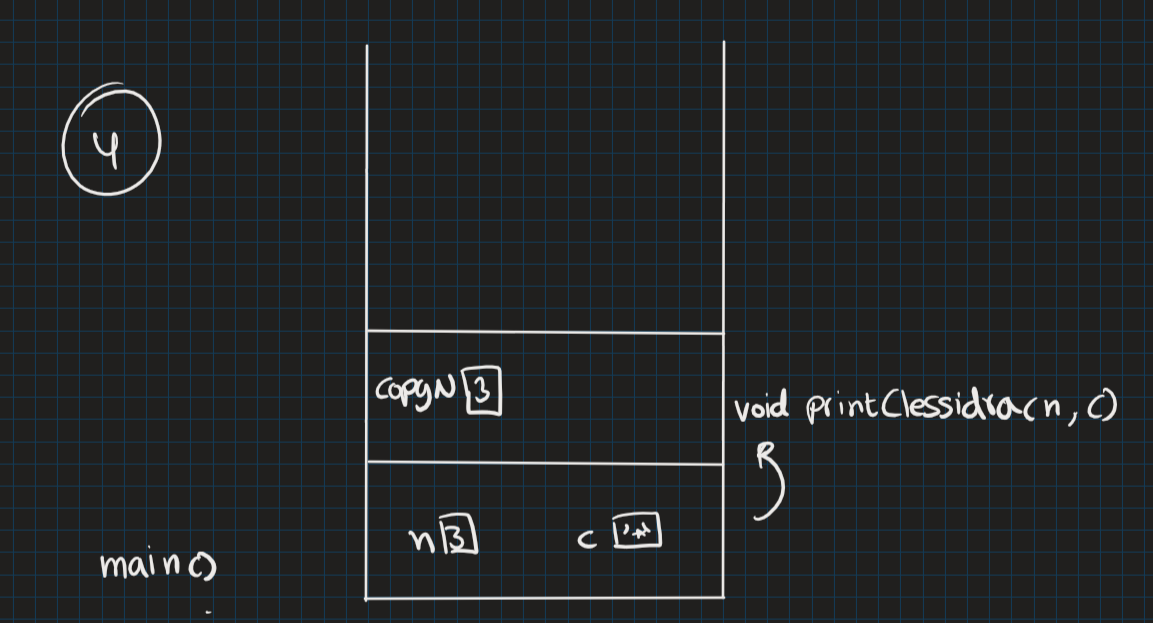 4
copyN 3
void printClessidra(n, c)
n 3 c '*'
main()